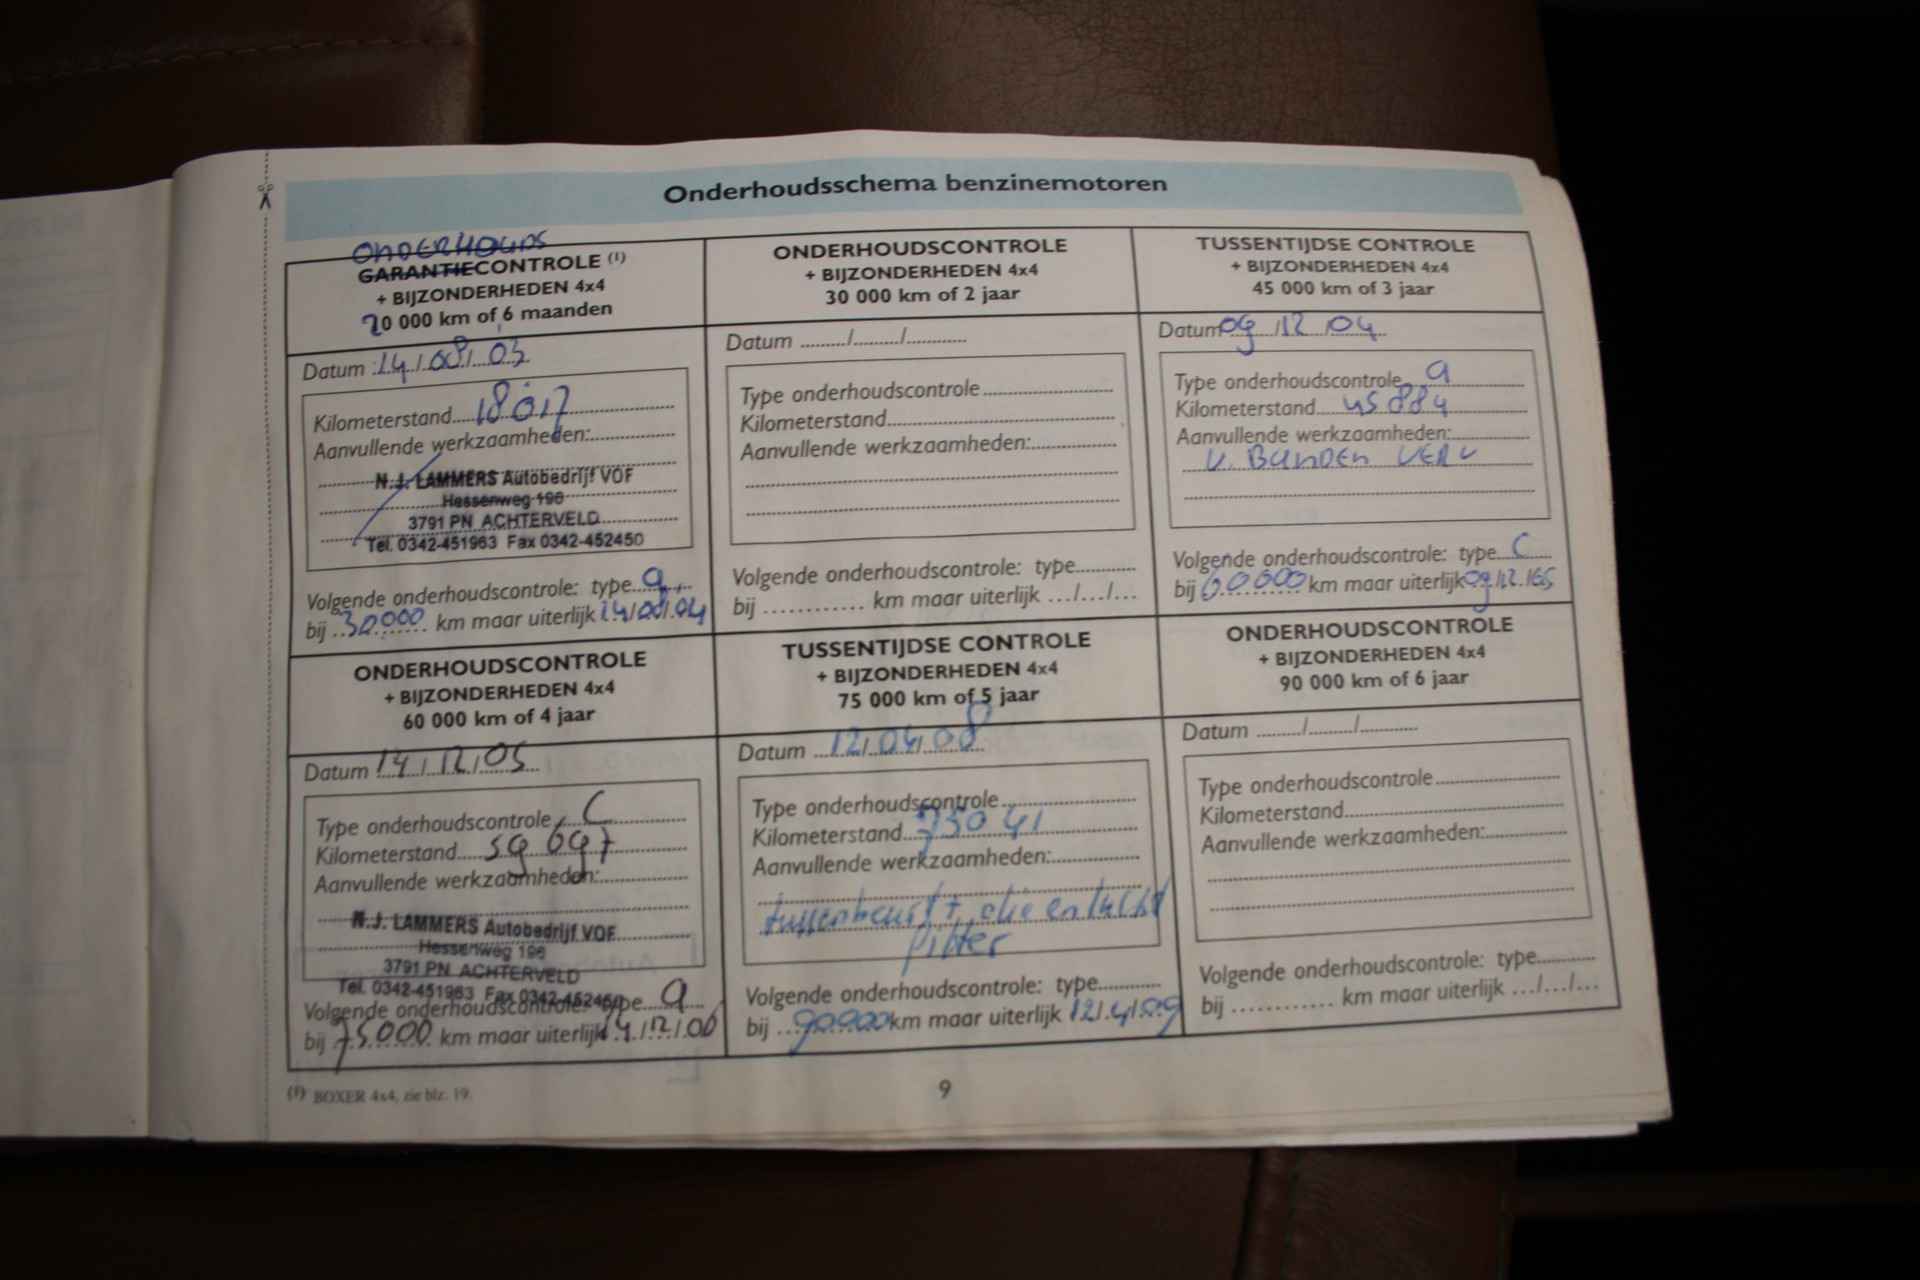 Onderhoudsschema benzinemotoren
ONDERHOUDS
GARANTIECONTROLE (1)
+ BIJZONDERHEDEN 4x4
20 000 km of 6 maanden
Datum : 14/08/03
Kilometerstand 18017
Aanvullende werkzaamheden:
N.J. LAMMERS Autobedrijf VOF
Hessenweg 196
3791 PN ACHTERVELD
Tel. 0342-451963 Fax 0342-452450
Volgende onderhoudscontrole: type a
bij 30000 km maar uiterlijk 14/08/04
ONDERHOUDSCONTROLE
+ BIJZONDERHEDEN 4x4
30 000 km of 2 jaar
Datum ........./........./............
Type onderhoudscontrole
Kilometerstand
Aanvullende werkzaamheden:
Volgende onderhoudscontrole: type
bij ............ km maar uiterlijk .../.../...
TUSSENTIJDSE CONTROLE
+ BIJZONDERHEDEN 4x4
45 000 km of 3 jaar
Datum 09/12/04
Type onderhoudscontrole a
Kilometerstand 45884
Aanvullende werkzaamheden:
V. BANDEN VERV
Volgende onderhoudscontrole: type C
bij 60000 km maar uiterlijk 09/12/05
ONDERHOUDSCONTROLE
+ BIJZONDERHEDEN 4x4
60 000 km of 4 jaar
Datum 14/12/05
Type onderhoudscontrole C
Kilometerstand 59697
Aanvullende werkzaamheden:
N.J. LAMMERS Autobedrijf VOF
Hessenweg 196
3791 PN ACHTERVELD
Tel. 0342-451963 Fax 0342-452450
Volgende onderhoudscontrole: type a
bij 75000 km maar uiterlijk 14/12/06
TUSSENTIJDSE CONTROLE
+ BIJZONDERHEDEN 4x4
75 000 km of 5 jaar
Datum 12/04/08
Type onderhoudscontrole
Kilometerstand 75041
Aanvullende werkzaamheden:
tussenbeurt + olie en lucht
filter
Volgende onderhoudscontrole: type
bij 90000 km maar uiterlijk 12/4/09
ONDERHOUDSCONTROLE
+ BIJZONDERHEDEN 4x4
90 000 km of 6 jaar
Datum ........./........./............
Type onderhoudscontrole
Kilometerstand
Aanvullende werkzaamheden:
Volgende onderhoudscontrole: type
bij ............ km maar uiterlijk .../.../...
(1) BOXER 4x4, zie blz. 19.
9